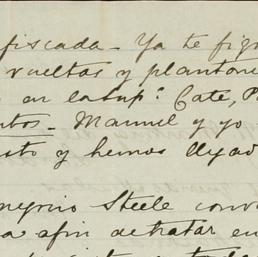 fiscada - Ya te figu
vueltas y plantone
en la Sup.ª Cate, P
tos - Manuel y yo
sto y hemos
Steele conv
a afin de tratar en